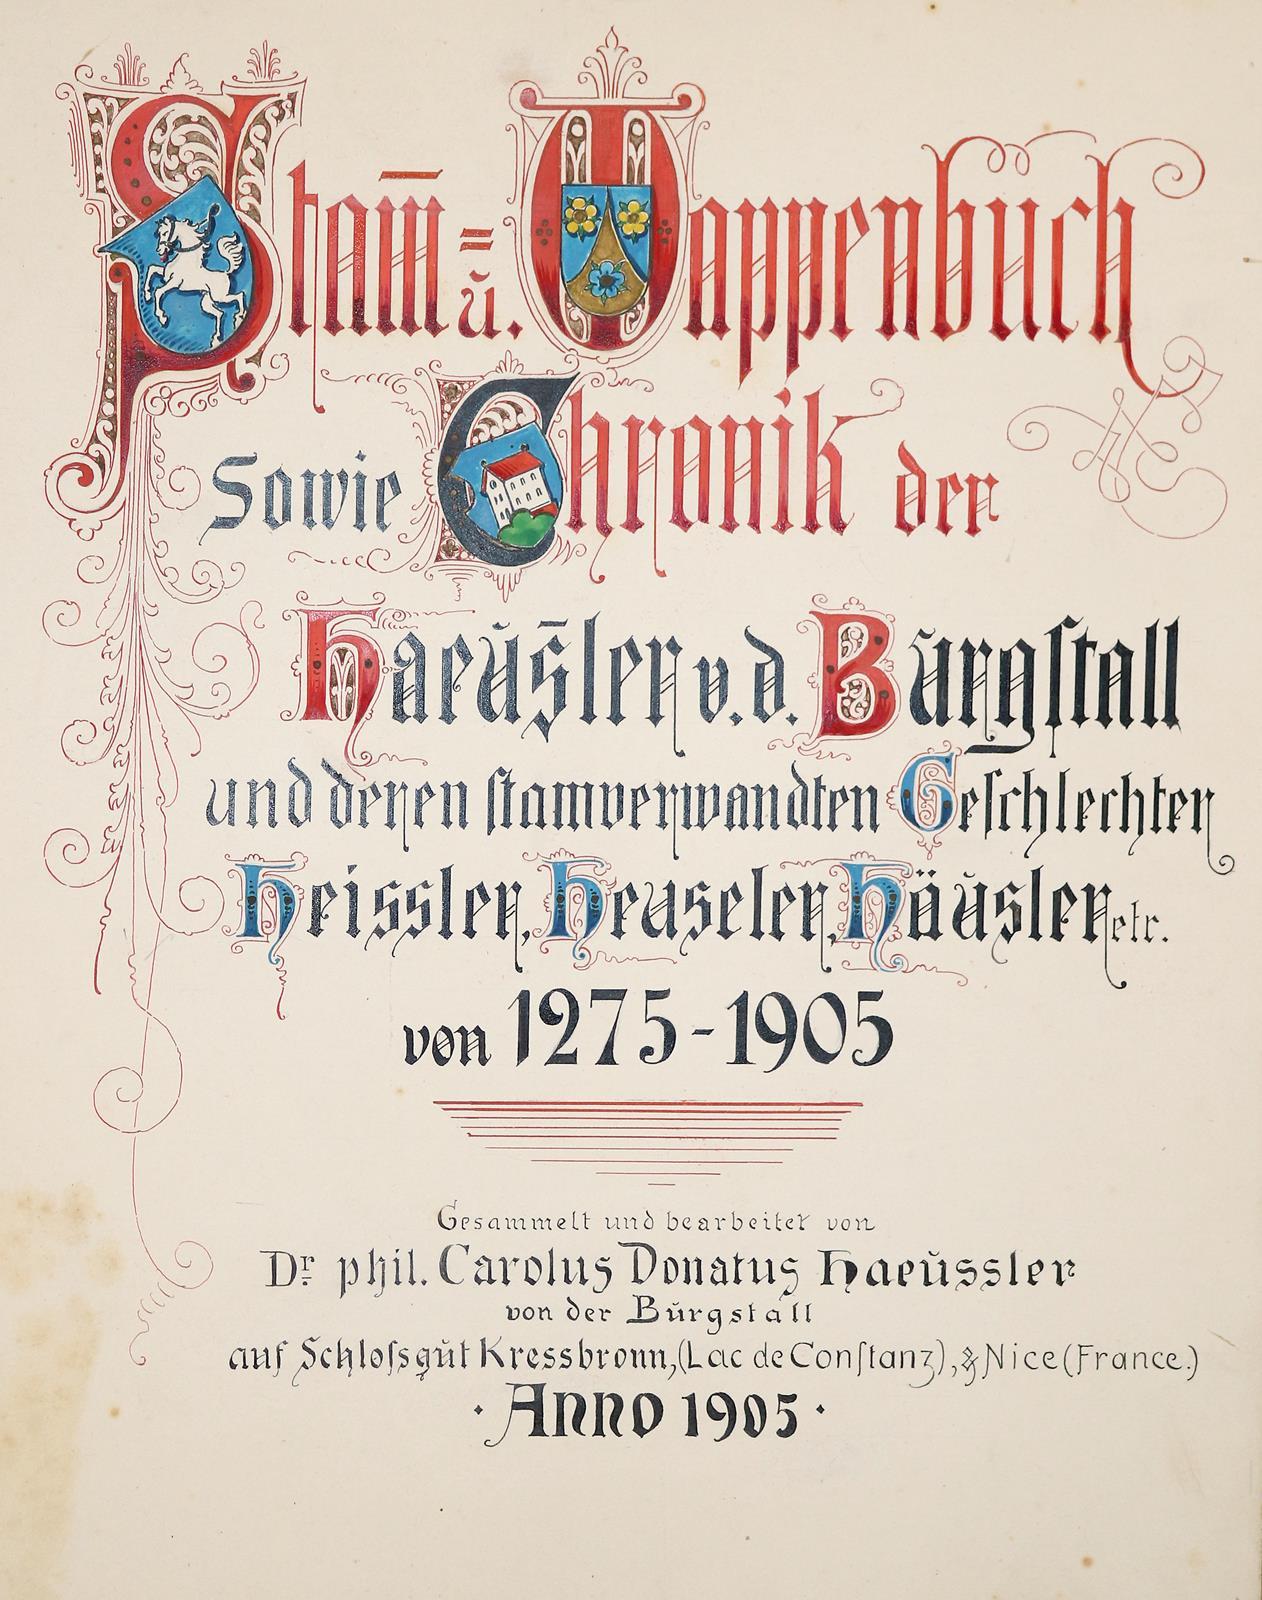 Stam̄= u. Wappenbuch
Sowie Chronik der
Haeŭs̄ler v. d. Bŭrgstall
und deren stamverwandten Geschlechter
Heissler, Heuseler, Häŭsler etc.
von 1275-1905
Gesammelt und bearbeitet von
Dr. phil. Carolus Donatus Haeŭssler
von der Bŭrgstall
auf Schloſsgŭt Kressbronn, (Lac de Conſtanz), & Nice (France.)
· Anno 1905 ·